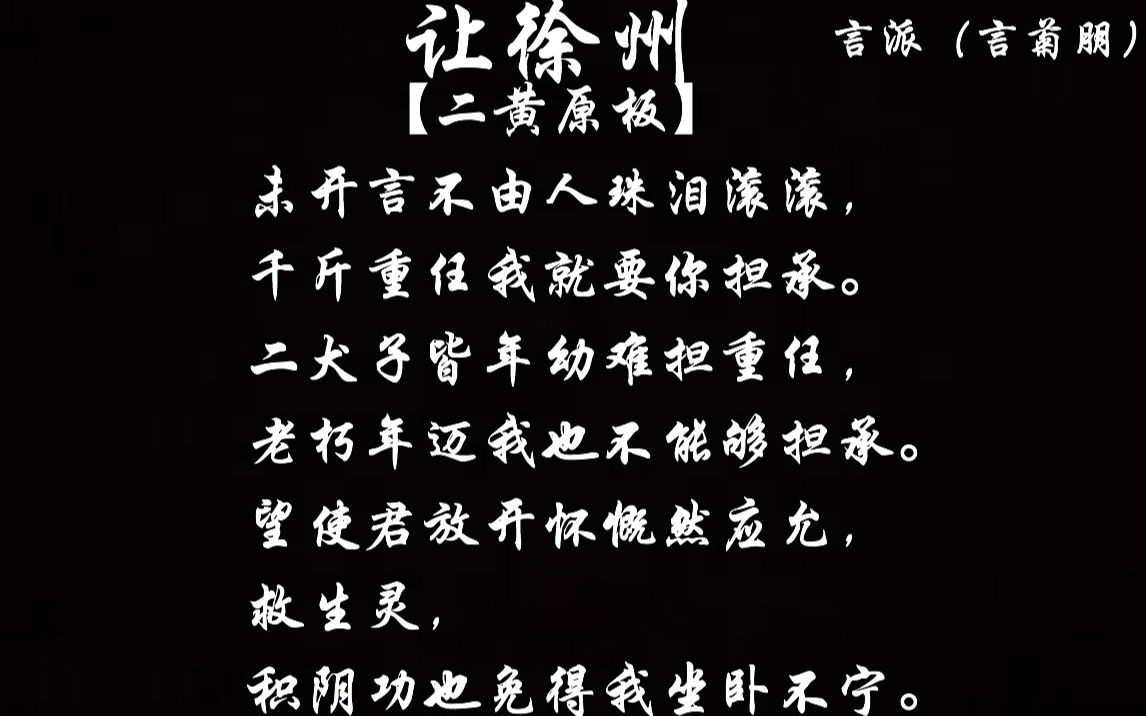 让徐州
言派（言菊朋）
【二黄原板】
未开言不由人珠泪滚滚，
千斤重任我就要你担承。
二犬子皆年幼难担重任，
老朽年迈我也不能够担承。
望使君放开怀慨然应允，
救生灵，
积阴功也免得我坐卧不宁。